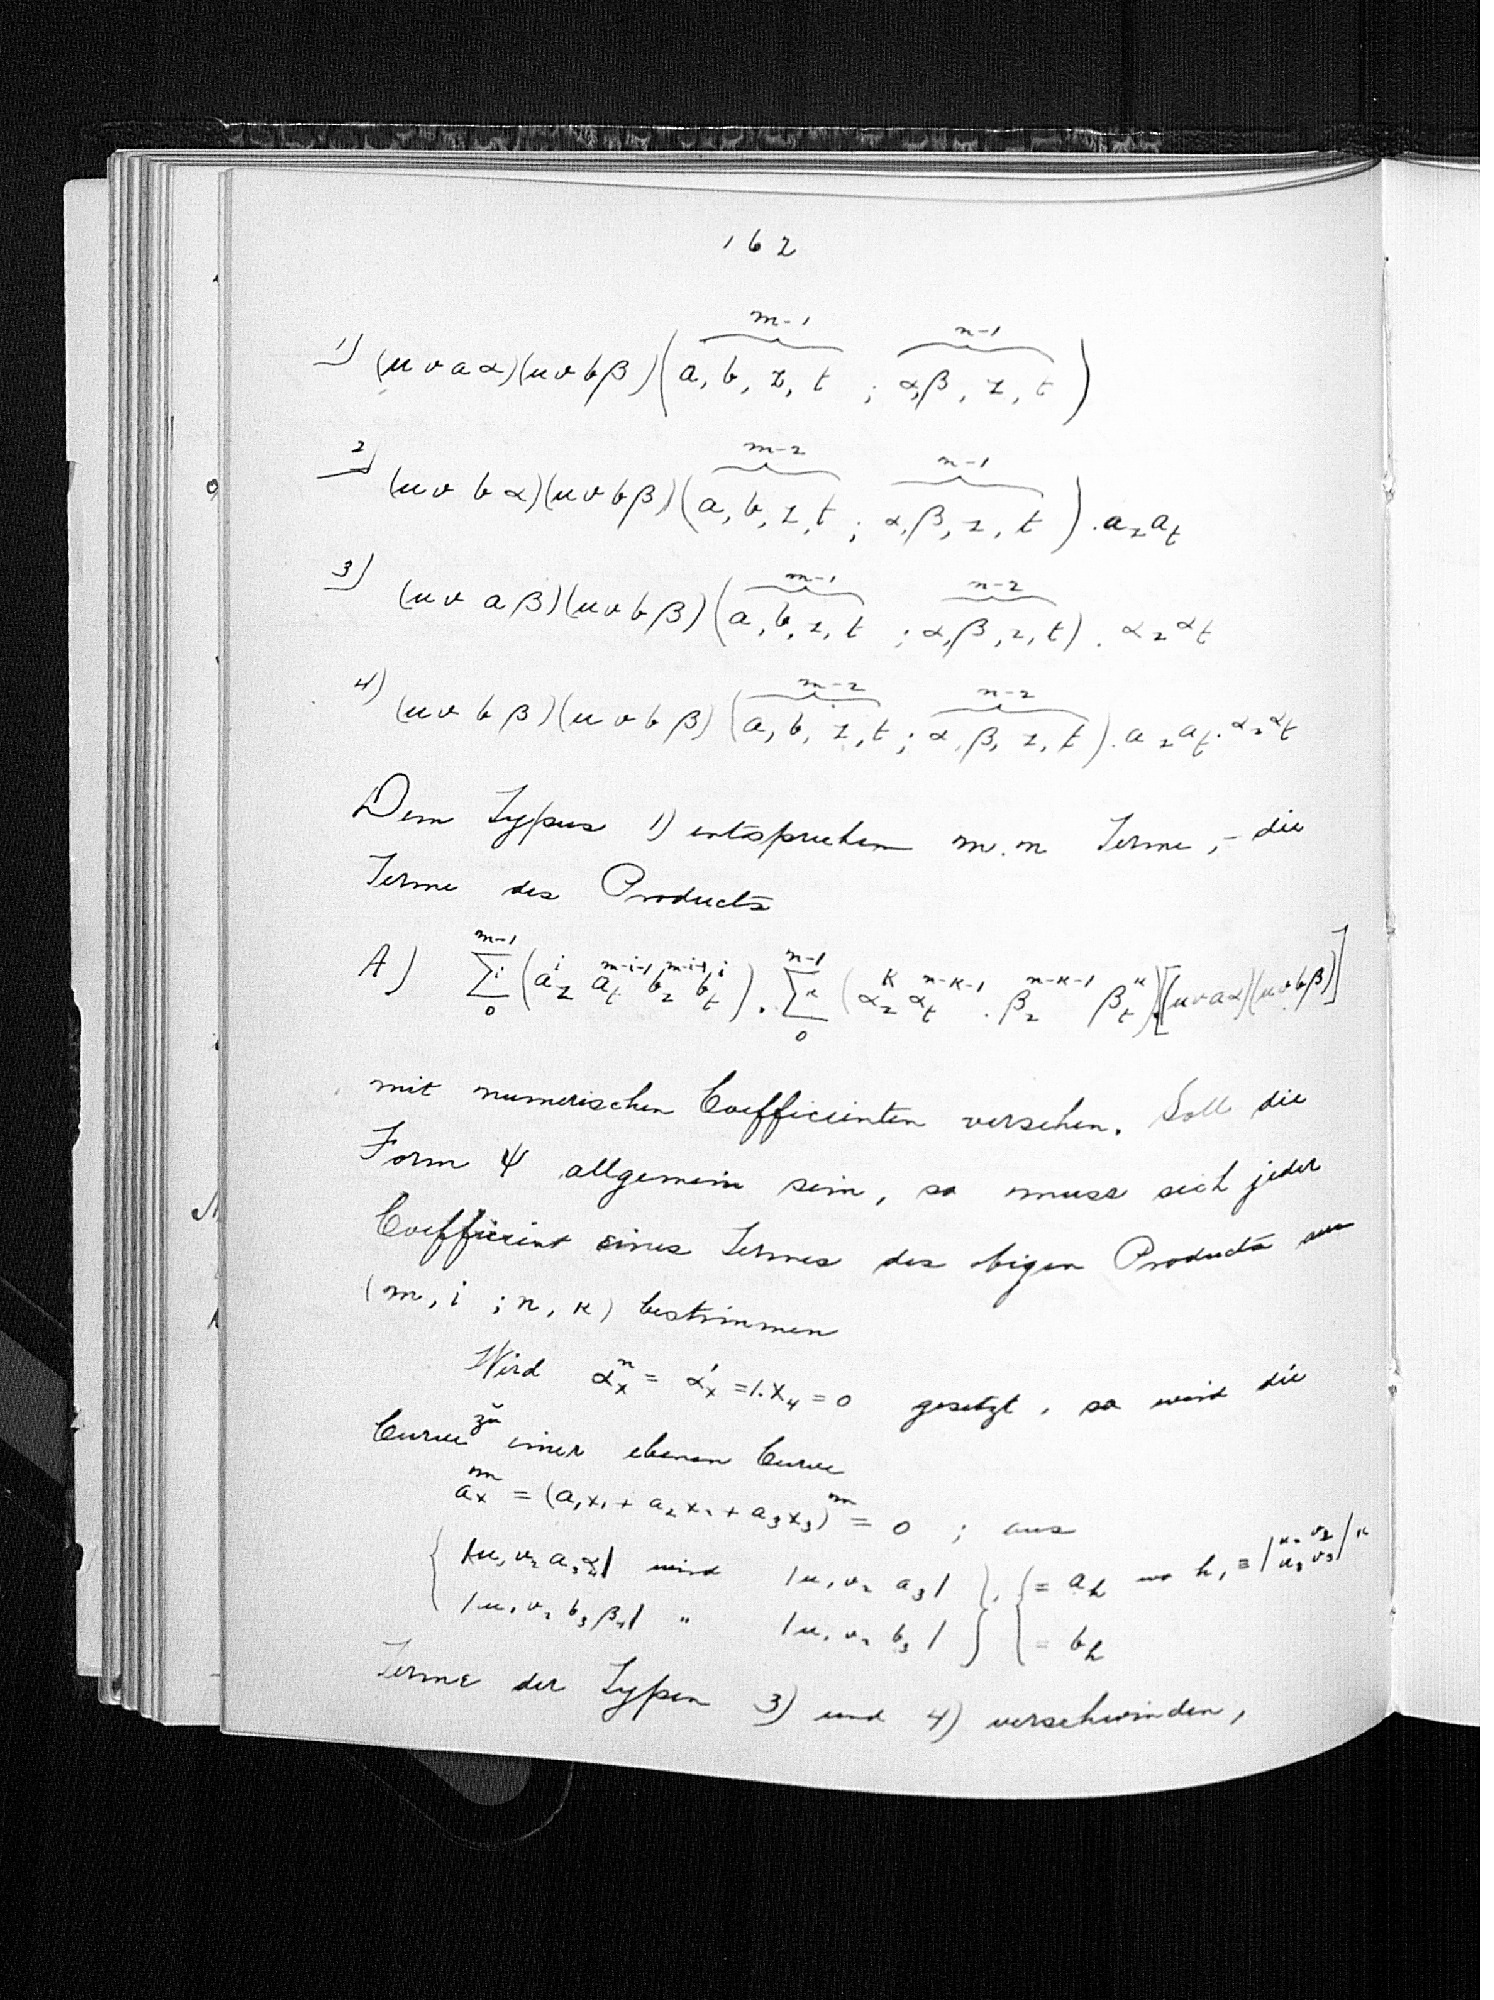 162
1) (u v a α)(u v b β)(a, b, z, t ; α, β, z, t) m-1 n-1
2) (u v b α)(u v b β)(a, b, z, t ; α, β, z, t) . a_z a_t m-2 n-1
3) (u v a β)(u v b β)(a, b, z, t ; α, β, z, t) . α_z α_t m-1 n-2
4) (u v b β)(u v b β)(a, b, z, t ; α, β, z, t) . a_z a_t . α_z α_t m-2 n-2
Dem Typus 1) entsprechen m.n Terme, – die
Terme des Products
A) Σ_0^{m-1} i (a_z^i a_t^{m-i-1} b_z^{m-i-1} b_t^i) . Σ_0^{n-1} κ (α_z^κ α_t^{n-κ-1} . β_z^{n-κ-1} β_t^κ) . [(u v a α)(u v b β)]
mit numerischen Coefficienten versehen. Soll die
Form Ψ allgemein sein, so muss sich jeder
Coefficient eines Termes des obigen Products aus
(m, i ; n, κ) bestimmen
Wird α_x^n = α'_x = 1.x_4 = 0 gesetzt, so wird die
Curve zu einer ebenen Curve
a_x^m = (a_1 x_1 + a_2 x_2 + a_3 x_3)^m = 0 ; aus
{ |u_1 v_2 a_3 α_4| wird |u_1 v_2 a_3| } . { = a_h wo h_1 = |u_2 v_2 u_3 v_3|
|u_1 v_2 b_3 β_4| " |u_1 v_2 b_3| = b_h
Terme der Typen 3) und 4) verschwinden,